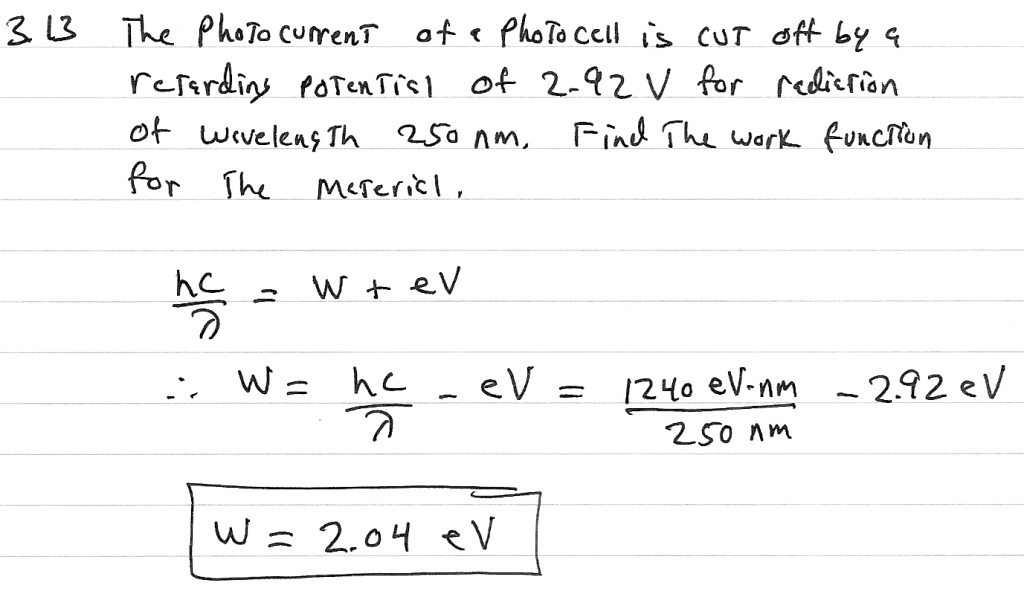 3.13 The photocurrent of a photocell is cut off by a
retarding potential of 2.92 V for radiation
of wavelength 250 nm. Find the work function
for the material.
hc/λ = W + eV
∴ W = hc/λ - eV = 1240 eV-nm/250 nm - 2.92 eV
W = 2.04 eV